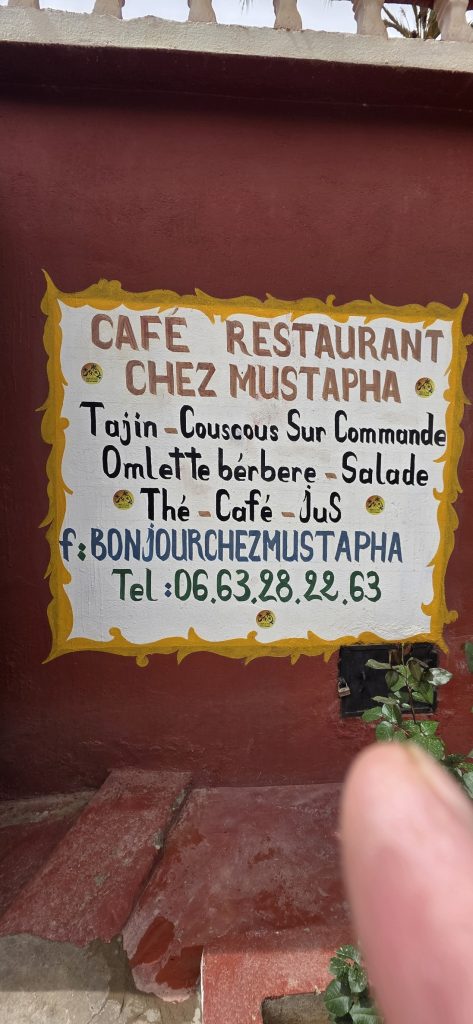 CAFÉ RESTAURANT
CHEZ MUSTAPHA
Tajin - Couscous Sur Commande
Omlette bérbere - Salade
Thé - Café - Jus
f: BONJOURCHEZMUSTAPHA
Tel : 06.63.28.22.63